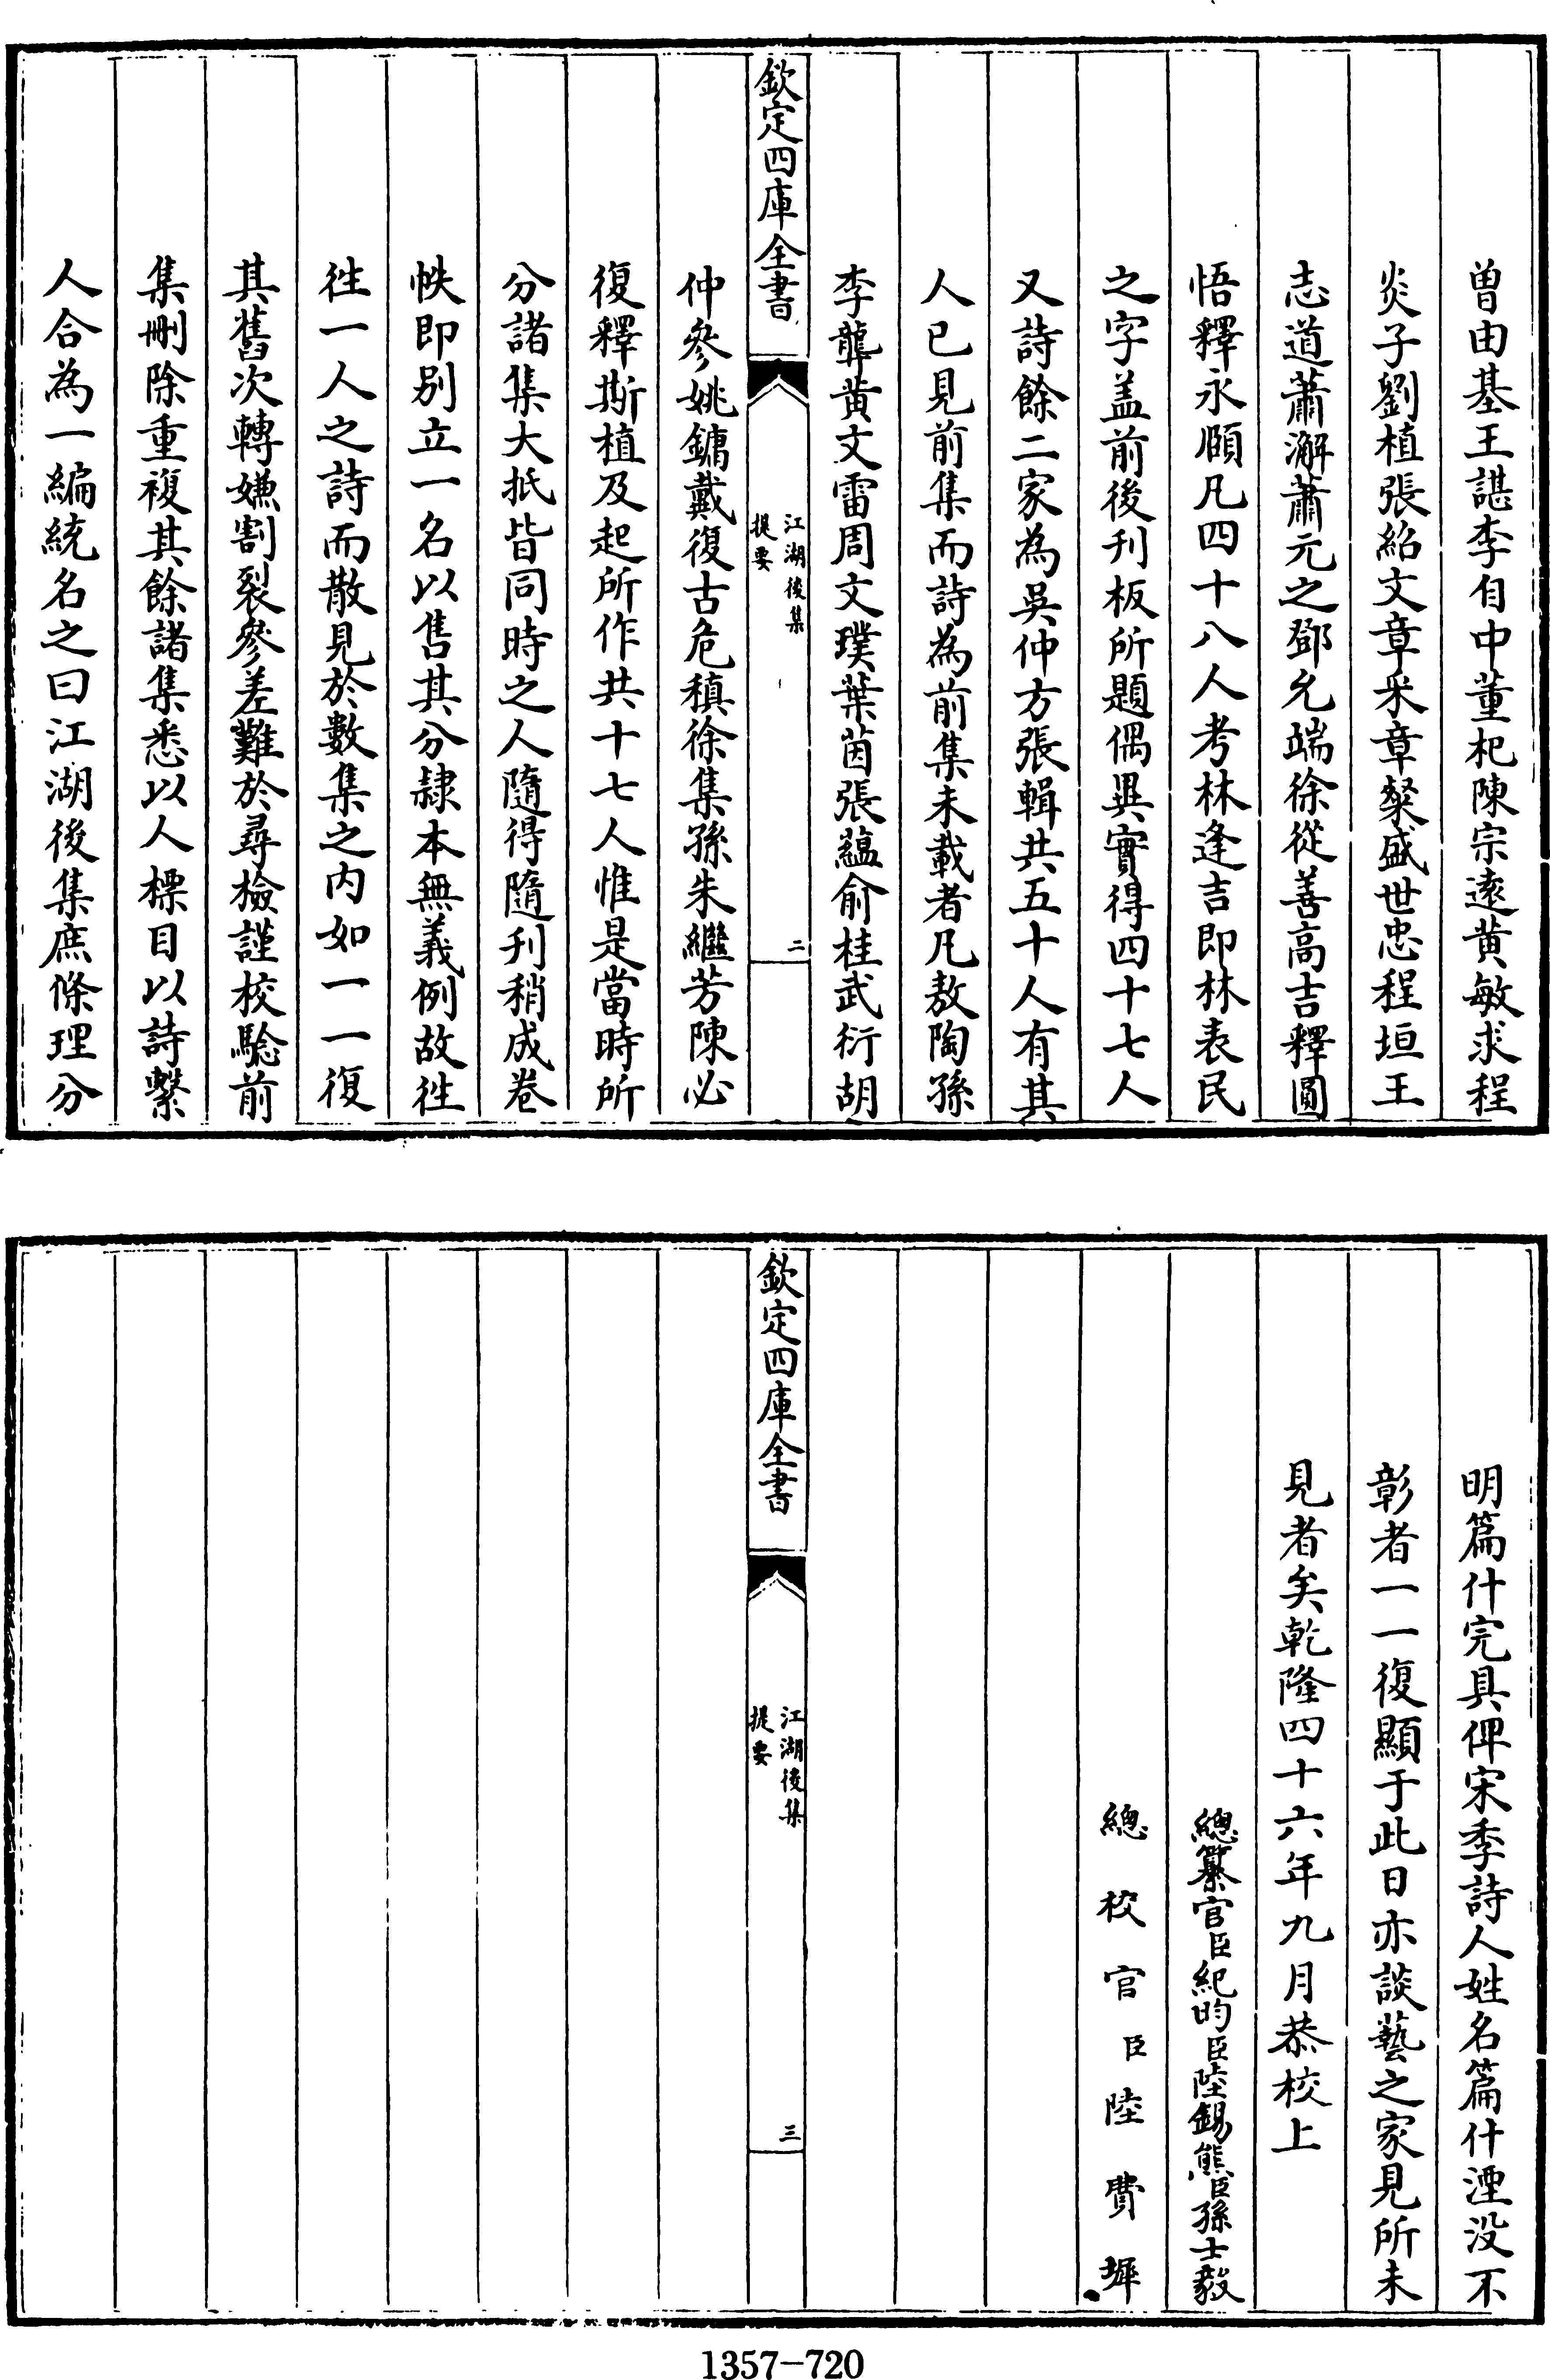 曾由基王諶李自中董杞陳宗遠黄敏求程
炎子劉植張紹文章采章粲盛世忠程垣王
志道蕭澥蕭元之鄧允端徐從善高吉釋圓
悟釋永頤凡四十八人考林逢吉即林表民
之字盖前後刋板所題偶異實得四十七人
又詩餘二家為吳仲方張輯共五十人有其
人已見前集而詩為前集未載者凡敖陶孫
李龏黄文雷周文璞葉茵張藴俞桂武衍胡
欽定四庫全書
江湖後集
提要
二
仲參姚鏞戴復古危稹徐集孫朱繼芳陳必
復釋斯植及起所作共十七人惟是當時所
分諸集大抵皆同時之人隨得隨刋稍成卷
帙即别立一名以售其分隷本無義例故徃
徃一人之詩而散見於數集之内如一一復
其舊次轉嫌割裂參差難於尋檢謹校騐前
集刪除重複其餘諸集悉以人標目以詩繫
人合為一編統名之曰江湖後集庶條理分
明篇什完具俾宋季詩人姓名篇什湮没不
彰者一一復顯于此日亦談藝之家見所未
見者矣乾隆四十六年九月恭校上
總纂官臣紀昀臣陸錫熊臣孫士毅
總校官臣陸費墀
欽定四庫全書
江湖後集
提要
三
1357-720